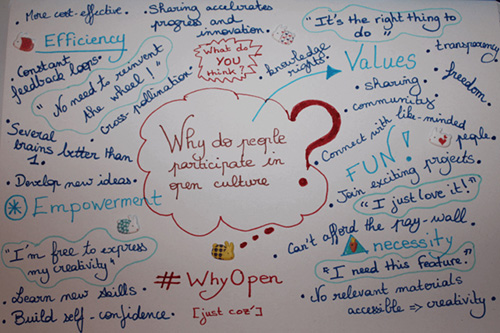 • More cost-effective.
• Sharing accelerates
progress and
innovation.
Efficiency
• Constant
feedback loops.
"No need to reinvent
the wheel!"
• cross pollination
What do
YOU
think?
• knowledge
rights.
"It's the right thing to
do"
Values
• transparency
• sharing
• freedom.
• community
• Connect with like-minded
people.
• Several
brains better than
1.
• Develop new ideas.
Why do people
participate in
open culture
?
FUN!
• Join exciting projects.
"I just love it!"
Empowerment
"I'm free to express
my creativity"
• Learn new skills
• Build self-confidence.
#WhyOpen
[just coz']
• Can't afford the pay-wall.
necessity
"I need this feature."
• No relevant materials
accessible => creativity